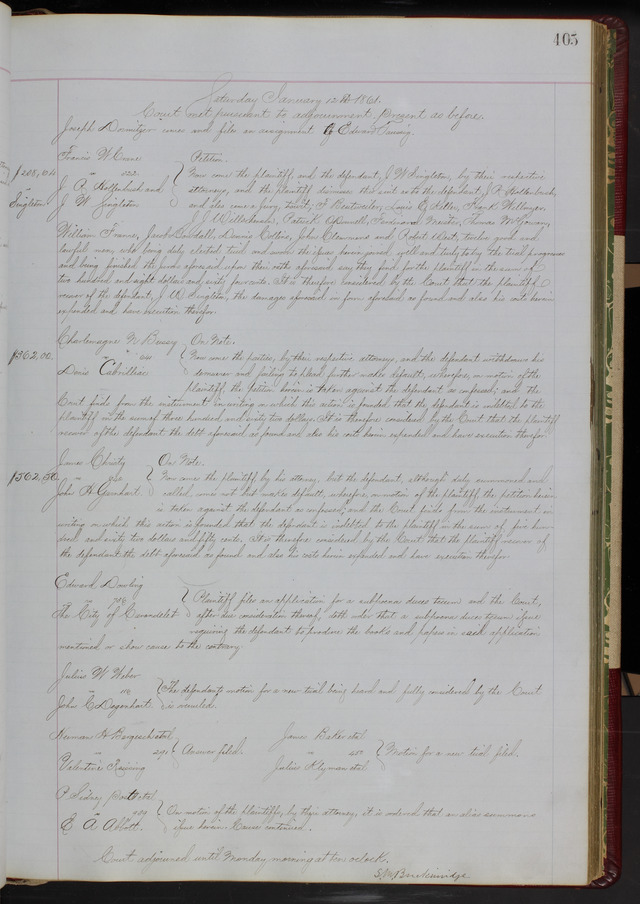 405
Saturday January 12th 1861.
Court met pursuant to adjournment. Present as before.
Joseph comes and files an assignment of Edward
Francis W } Petition.
$208,04 Now come the plaintiff and the defendant, J W Singleton, by their respective
vs J. R. and attorneys, and the plaintiff dismisses the suit as to the defendant, J R
Singleton J W Singleton and also come a jury, twelve,
J. J. Patrick Ferdinand Thomas
William Jacob Dennis Collins, John Clemmens and Robert twelve good and
lawful men, who being duly elected tried and sworn the issues herein joined well and truly to try the trial progresses
and being finished the jurors aforesaid upon their oaths aforesaid say they find for the plaintiff in the sum of
two hundred and eight dollars and cents. It is therefore considered by the Court that the plaintiff
recover of the defendant, J W Singleton, the damages aforesaid in form aforesaid as found and also his costs herein
expended and have execution therefor.
Charlemagne On Note.
$362,00. Now come the parties, by their respective attorneys, and the defendant withdraws his
Denis demurrer and failing to plead further makes default, wherefore, on motion of the
plaintiff the petition herein is taken against the defendant as confessed; and the
Court finds from the instrument in writing on which this action is founded, that the defendant is indebted to the
plaintiff in the sum of three hundred and sixty two dollars. It is therefore considered by the Court that the plaintiff
recover of the defendant the debt aforesaid as found and also his costs herein expended and have execution therefor.
James Christy On Note.
$562,50. Now comes the plaintiff by his attorney, but the defendant, although duly summoned and
John H. called, comes not but makes default, wherefore, on motion of the plaintiff, the petition herein
is taken against the defendant as confessed; and the Court finds from the instrument in
writing on which this action is founded that the defendant is indebted to the plaintiff in the sum of five hun-
dred and sixty two dollars and fifty cents. It is therefore considered by the Court that the plaintiff recover of
the defendant the debt aforesaid as found and also his costs herein expended and have execution therefor.
Edward Dowling
The City of Carondelet } Plaintiff files an application for a subpoena duces tecum and the Court,
after due consideration thereof, doth order that a subpoena duces tecum issue
requiring the defendant to produce the books and papers in said application
mentioned or show cause to the contrary.
Julius W Weber
110 } The defendants motion for a new trial being heard and fully considered by the Court
John C is overruled.
Herman H et al James Baker et al
291 } Answer filed. } Motion for a new trial filed.
Valentine Julius et al
P Sidney et al
E A Abbott. } On motion of the plaintiffs, by their attorney, it is ordered that an alias summons
issue herein. Cause continued.
Court adjourned until Monday morning at ten oclock.
S. M. Breckinridge